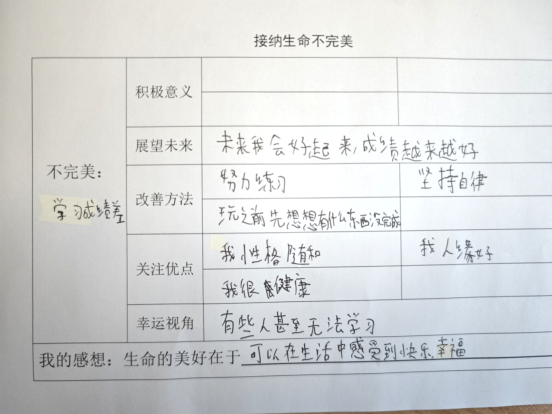 接纳生命不完美
积极意义
不完美：
学习成绩差
展望未来 未来我会好起来,成绩越来越好
改善方法 努力练习 坚持自律
玩之前先想想有什么东西没完成
关注优点 我性格随和 我人缘好
我很健康
幸运视角 有些人甚至无法学习
我的感想：生命的美好在于 可以在生活中感受到快乐幸福